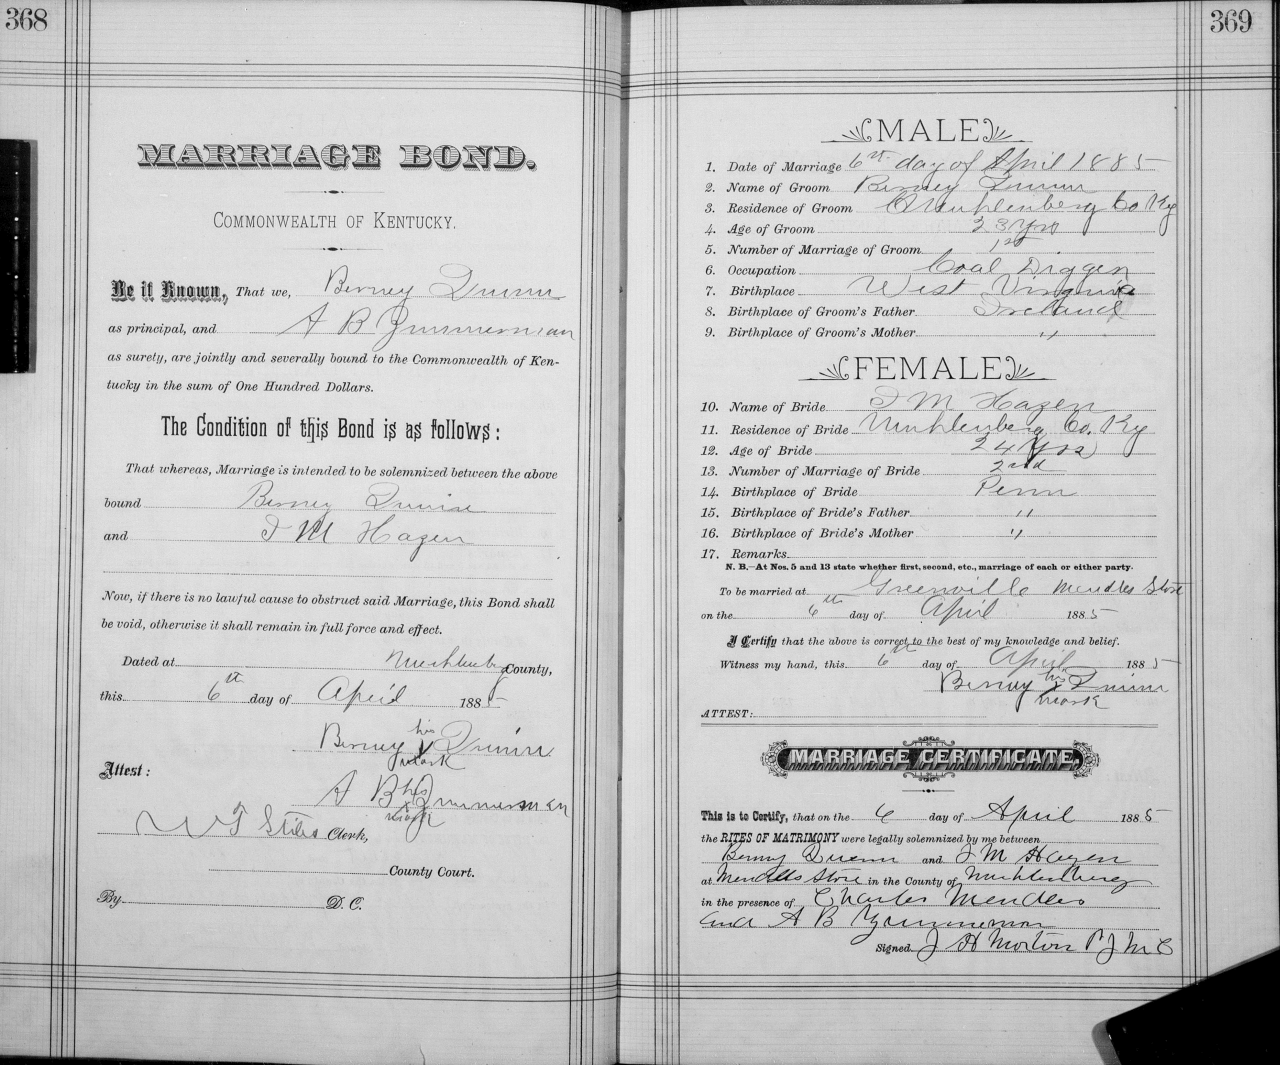 368
MARRIAGE BOND.
COMMONWEALTH OF KENTUCKY.
Be it Known, That we, Berney Quinn
as principal, and A B Zimmerman
as surety, are jointly and severally bound to the Commonwealth of Ken-
tucky in the sum of One Hundred Dollars.
The Condition of this Bond is as follows:
That whereas, Marriage is intended to be solemnized between the above
bound Berney Quinn
and I M Hagen
Now, if there is no lawful cause to obstruct said Marriage, this Bond shall
be void, otherwise it shall remain in full force and effect.
Dated at Muhlenberg County,
this 6th day of April 1885
Berney his x mark Quinn
Attest:
A B his x mark Zimmerman
W T Stiles Clerk,
County Court.
By D. C.
369
MALE
1. Date of Marriage 6th day of April 1885
2. Name of Groom Berney Quinn
3. Residence of Groom Muhlenberg Co Ky
4. Age of Groom 23 yrs
5. Number of Marriage of Groom 1st
6. Occupation Coal Digger
7. Birthplace West Virginia
8. Birthplace of Groom's Father Ireland
9. Birthplace of Groom's Mother "
FEMALE
10. Name of Bride I M Hagen
11. Residence of Bride Muhlenberg Co. Ky
12. Age of Bride 24 yrs
13. Number of Marriage of Bride 2nd
14. Birthplace of Bride Penn
15. Birthplace of Bride's Father "
16. Birthplace of Bride's Mother "
17. Remarks
N. B.—At Nos. 5 and 13 state whether first, second, etc., marriage of each or either party.
To be married at Greenville Mendles Store
on the 6th day of April 1885
I Certify that the above is correct to the best of my knowledge and belief.
Witness my hand, this 6th day of April 1885
Berney his x mark Quinn
ATTEST:
MARRIAGE CERTIFICATE.
This is to Certify, that on the 6 day of April 1885
the RITES OF MATRIMONY were legally solemnized by me between
Berny Quinn and I M Hagen
at Mendles Store in the County of Muhlenberg
in the presence of Charles Mendles
and A B Zimmerman
Signed J H Morton P J M C